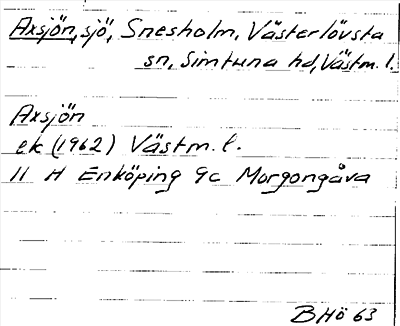 Axsjön, sjö, Snesholm, Västerlövsta
sn, Simtuna hd, Västm. l.
Axsjön
ek (1962) Västm. l.
11 H Enköping 9c Morgongåva
BHö 63